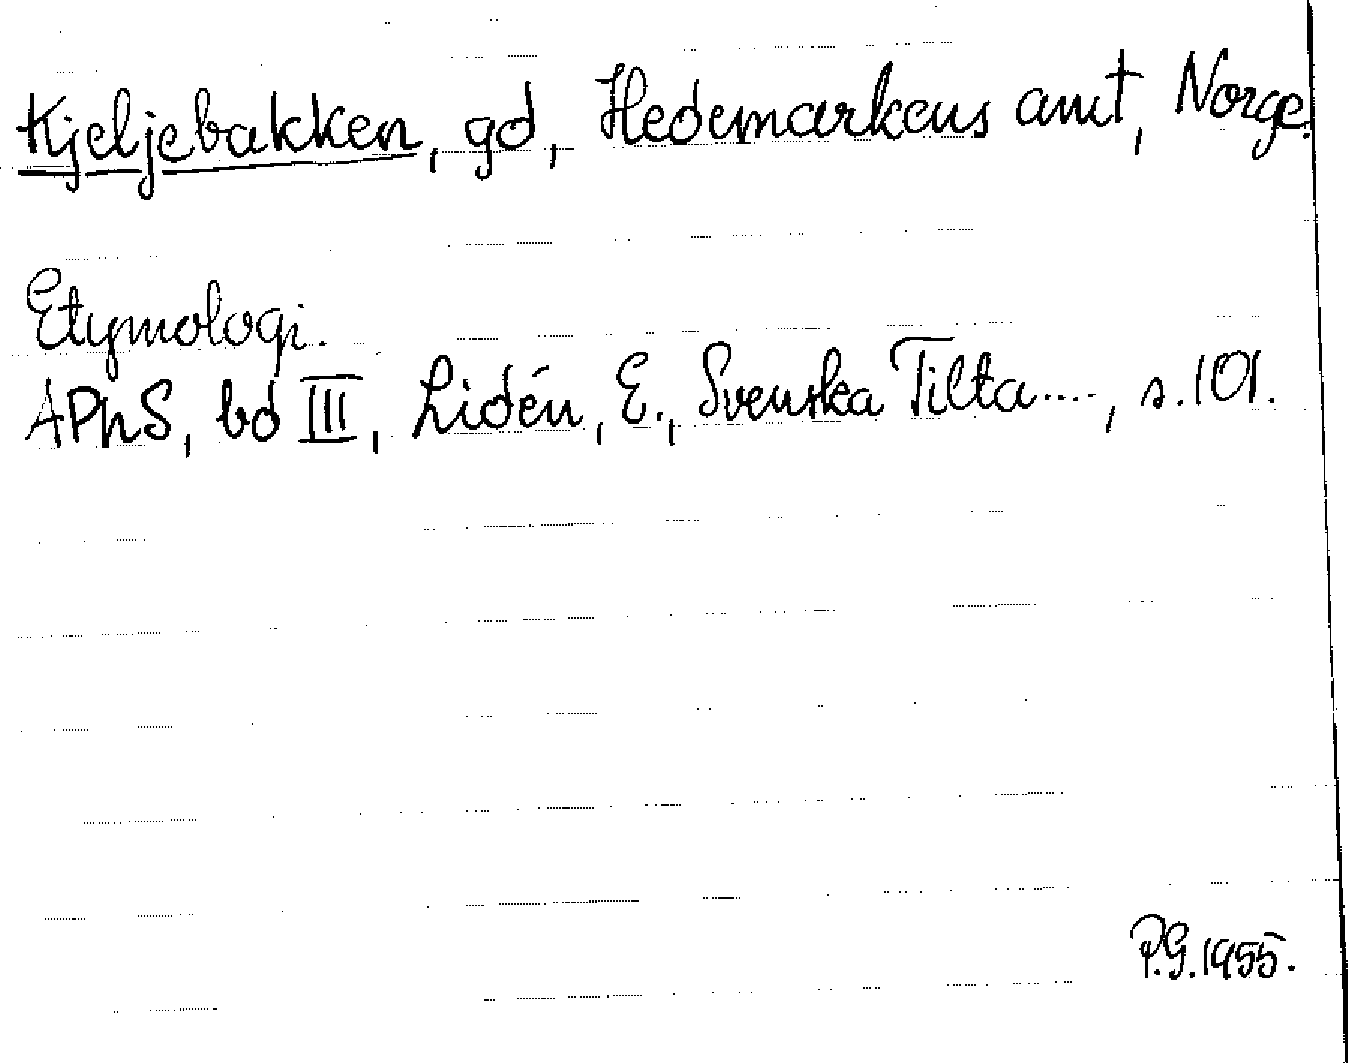 Kjeljebakken, gd, Hedemarkens amt, Norge.
Etymologi.
APhS, bd III, Lidén, E., Svenska Tilta...., s. 101.
P.G. 1955.